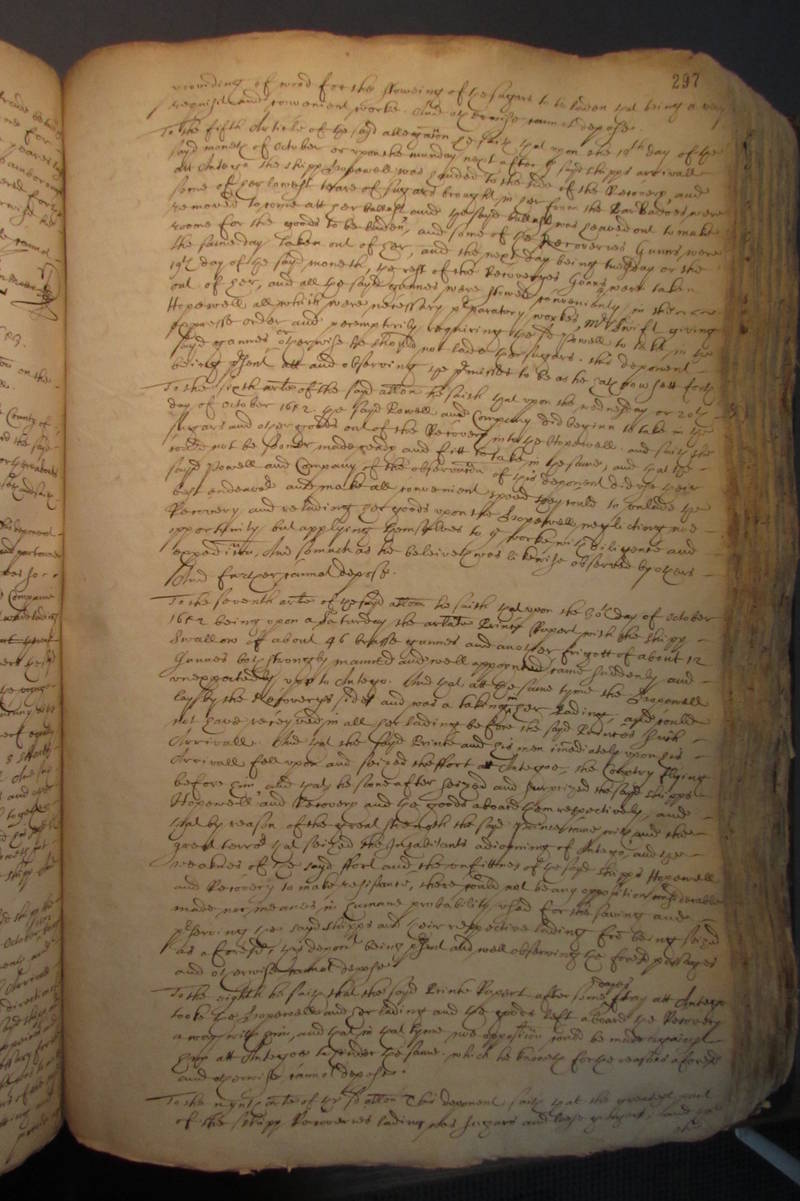 297
providing of wood for the stoweing of the sugars to be laden that being a very
requisit and convenient worke. And otherwise cannot depose.
To the fifth Article of the sayd allegation he saith that upon the 18th day of the
sayd moneth of October or upon the munday next after the sayd shipps arrivall
att Antego the shipp Hopewell was to the side of the Recovery, and
some of her lowest teare of sugars brought in her from the Barbadoes were
removed to come att her ballast and the sayd ballast was heaved out to make
roome for the goods to be laden, and some of the Recoveries Gunns were
the same day taken out of her, and the next day being tuesday or the
19th day of the sayd moneth, the rest of the Recoveryes Gunns were taken
out of her, and all the sayd gunnes were stowed conveniently in the
Hopewell all which were necessary preparatory workes, Mr Swift giving
expresse order and peremptorily requiring the sd Powell to take in the
sayd gunnes or otherwise he should not lade the sugars. this deponent
being present att and observing the premisses to be as he hath now sett forth
To the sixth arte of the said allon he saith that upon the wednesday or 20th
day of October 1652 the sayd Powell and Company did beginn to take in the
sugars and other goods out of the Recovery into the Hopewell. and saith she
could not be sooner made ready and fitt to take in the same, and that the
sayd Powell and Company of the observation of this deponent did use their
best endeavor and make all convenient speed they could to unlade the
Recovery and relading her goods upon the Hopewell, neglecting noe
opportunity but applying themselves to the worke with diligence and
expedition, And somuch as he beleiveth was likewise observed by others
And further cannot depose.
To the seventh arte of the sayd allon he saith that upon the 30th day of October
1652 being upon a Saturday the Prince Rupert with the shipp
Swallow of about 46 brasse gunnes and another frigott of about 12
Gunnes both strongly manned and well appointed came suddenly and
unexpectedly upp to Antego. And that att the same tyme the Hopewell
lay by the Recoverys side and was a taking in her lading, and could
not have received in all her lading before the sayd Princes such
Arrivall. And that the sayd Prince and his men imediately upon his
Arrivall fell upon and seized the ffort att Antegoe, the Country flying
before him, and that he soone after seized and surprized the sayd shipps
Hopewell and Recovery and the goods aboard them respectively, and
that by reason of the great strength the sayd Prince came with and the
great terror that seized the Inhabitants adioyning of Antego, and the
weaknes of the sayd ffort and the unfittnes of the sayd shipps Hopewell
and Recovery to make resistance, there could not be any opposition considerable
made nor meanes in humane probability used for the saving and
preserving the sayd shipps and their respective lading from being seized
as aforesd, this deponent being present and well observing the foresd passages
and otherwise cannot depose
To the eighth he saith that the sayd Prince Rupert after some dayes stay att Antego
tooke the Hopewell and her lading and the goods left aboard the Recovery
away with him, and that in that tyme noe opposition could be made against
him att Antegoe to hinder the same. which he knoweth for the reasons aforesd
and otherwise cannot depose.
To the nynth arte of the sd allon This deponent saith that the greatest part
of the shipp Recoveries lading was sugars and